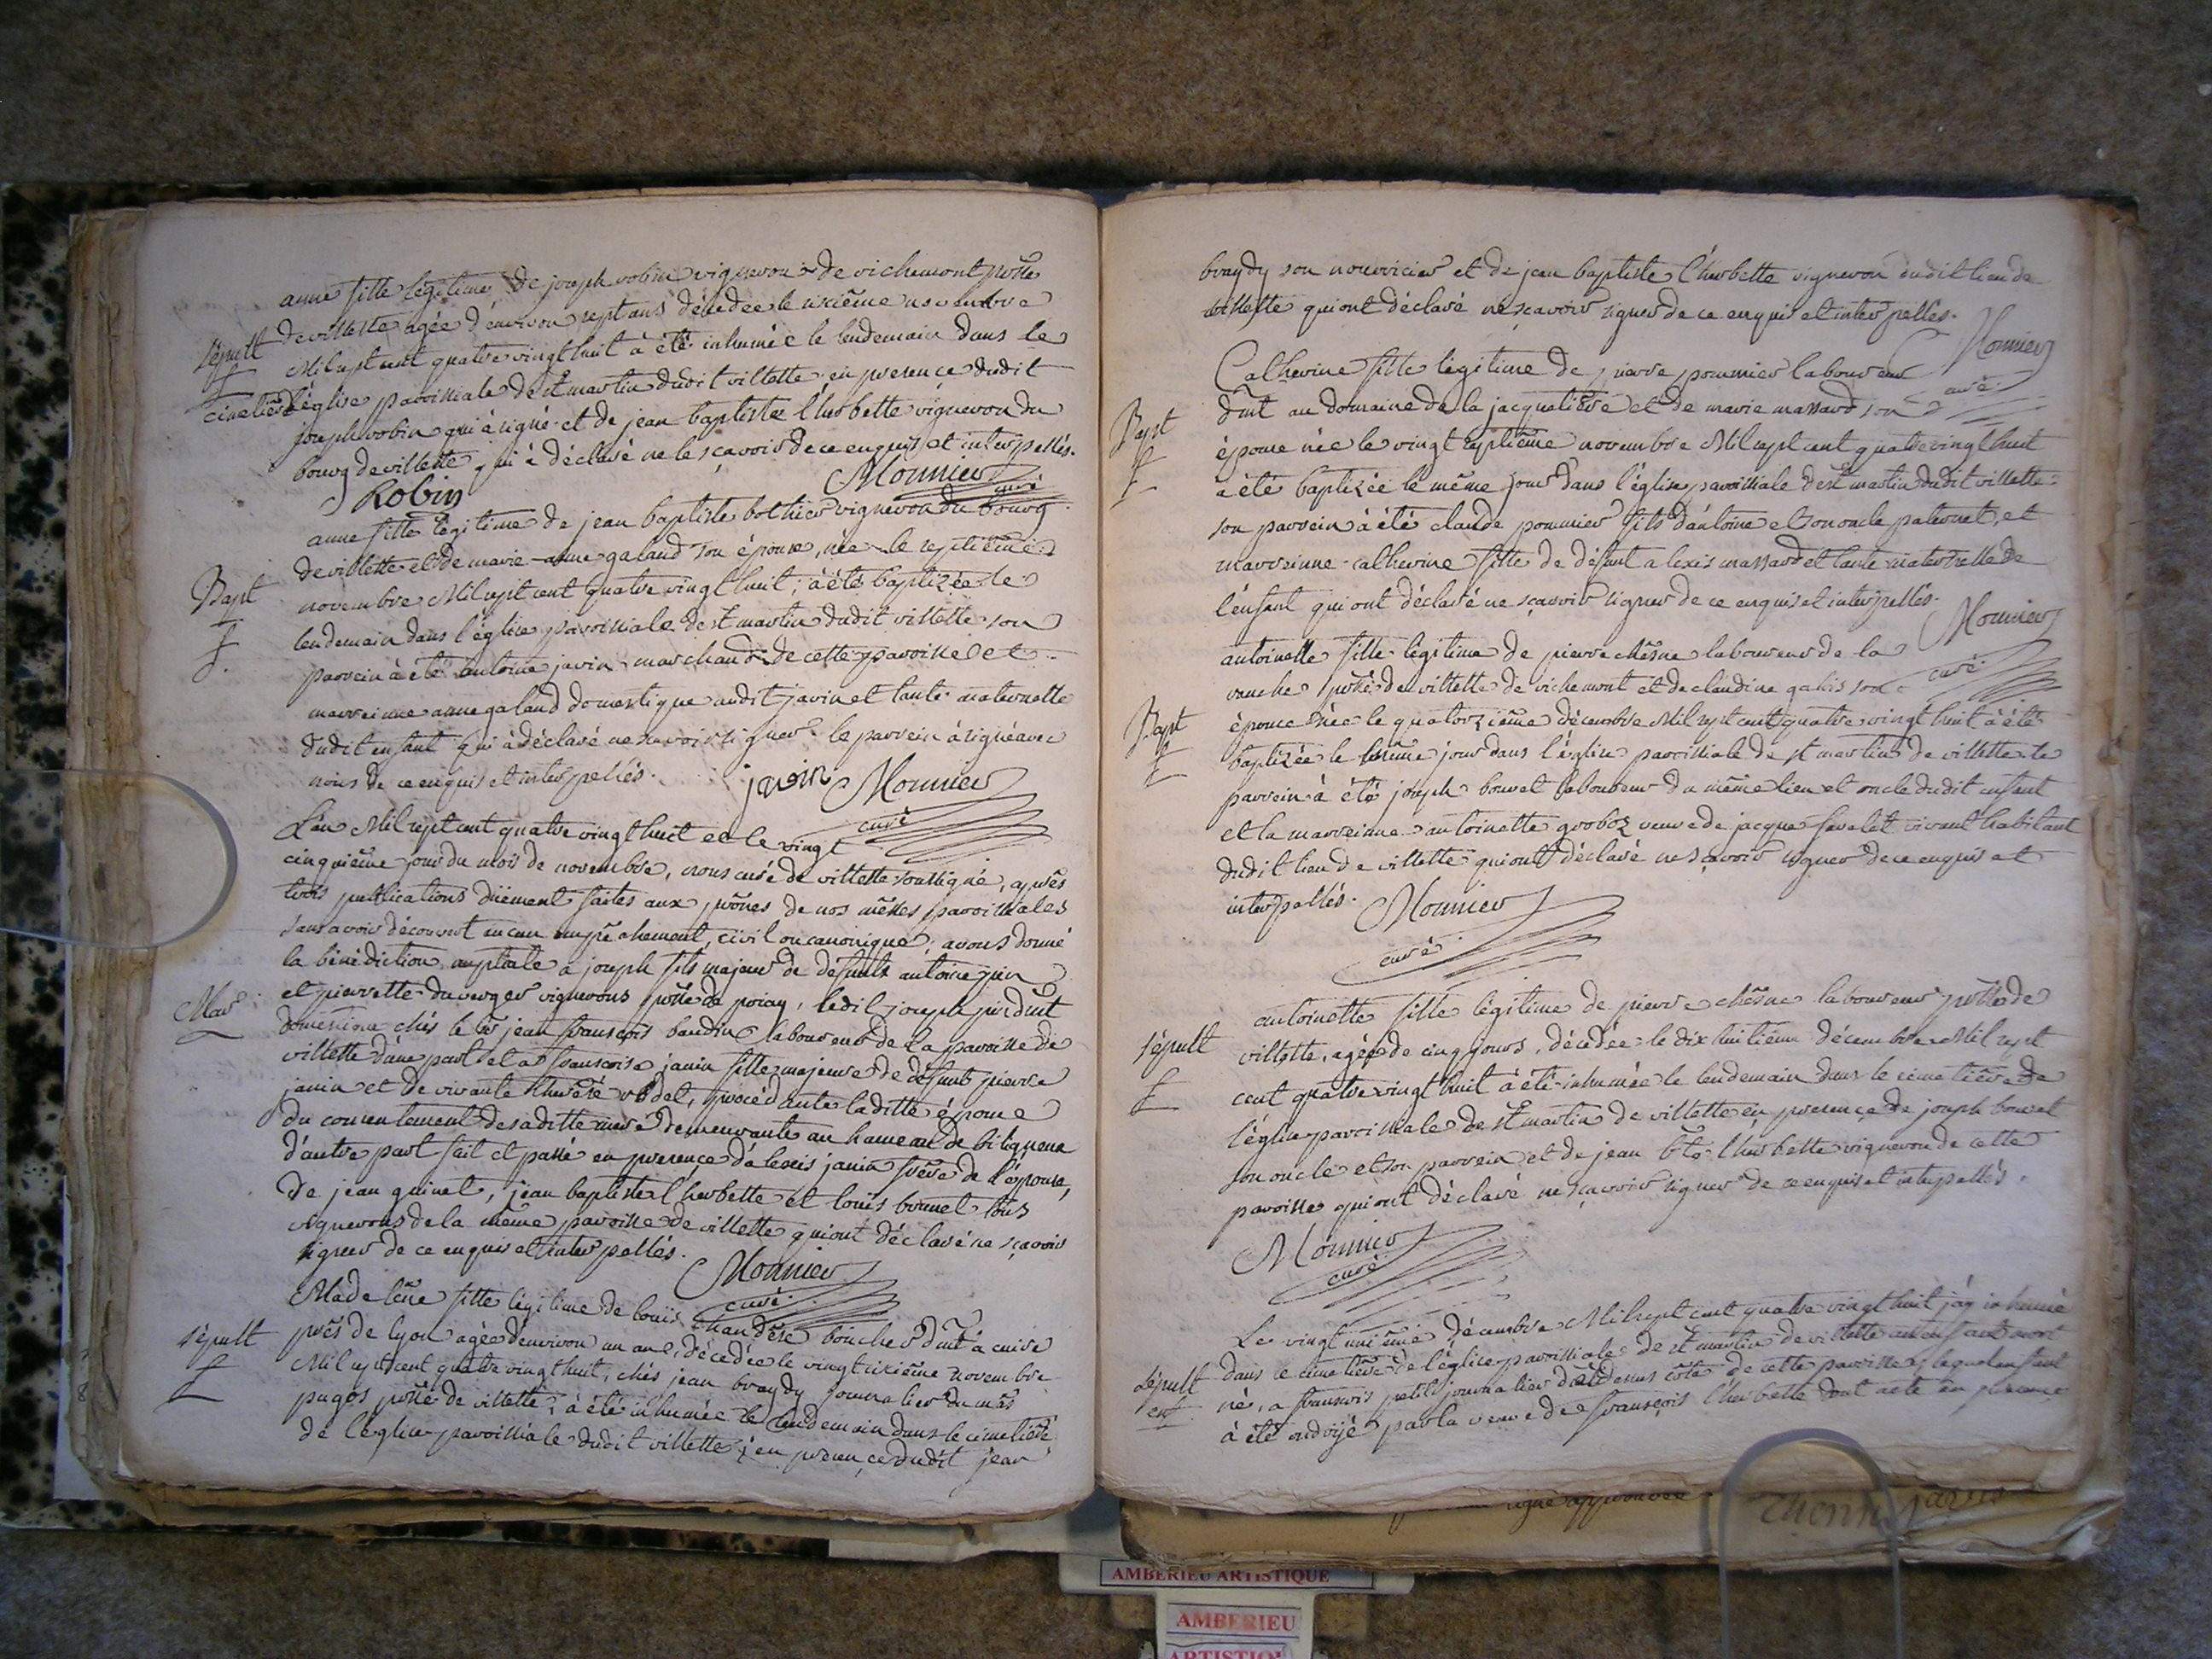 anne fille légitime de joseph robin vigneron de richemont psse
de villette agée d'environ sept ans décédée le sixième novembre
Sépult
f
Mil sept cent quatre vingt huit à été inhumée le lendemain dans le
cimetière
l'église paroissiale de st martin dudit villette en presence dudit
joseph robin qui à signé et de jean baptiste l'herbette vigneron du
bourg de villette qui à déclaré ne le sçavoir de ce enquis et interpellés.
Robin
Monnier
curé
anne fille légitime de jean baptiste bothier vigneron du bourg
de villette et de marie anne galand son épouse, née le septième
Bapt
f
novembre Mil sept cent quatre vingt huit, à été baptizée le
lendemain dans l'église paroissiale de st martin dudit villette son
parrein à été antoine javin marchand de cette paroisse et
marreinne anne galand domestique audit javin et tante maternelle
dudit enfant qui à déclaré ne savoir signer le parrein à signé avec
nous de ce enquis et interpellés.
javin
Monnier
curé
L'an Mil sept cent quatre vingt huit et le vingt
cinquième jour du mois de novembre, nous curé de villette soussigné, après
trois publications düement faites aux prônes de nos mêsses paroissiales
sans avoir découvert aucun empêchement, civil ou canonique, avons donné
la bénédiction nuptiale à joseph fils majeur de defunts antoine pin
Mar
et pierrette duverger vignerons psse de ledit joseph pin dmt
domestique chés le sr jean françois baudin laboureur de la paroisse de
villette d'une part et à françoise janin fille majeure de défunt pierre
janin et de vivante procédante laditte épouse
du consentement de saditte mère demeurante au hameau de bilignieux
d'autre part fait et passé en presence d'alexis janin frère de l'épouse,
de jean guinet, jean baptiste l'herbette et louis bonnet tous
vignerons de la même paroisse de villette qui ont déclaré ne sçavoir
signer de ce enquis et interpellés.
Monnier
curé
Madelène fille légitime de louis boucher dmt à cuire
Sépult
f
près de lyon agée d'environ un an, décédée le vingt sixième novembre
Mil sept cent quatre vingt huit, chés jean braydy journalier du mas
pages psse de villette, à été inhumée le lendemain dans le cimetière
de l'église paroissiale dudit villette, en presence dudit jean
braydy son nourricier et de jean baptiste l'herbette vigneron dudit lieu de
villette qui ont déclaré ne sçavoir signer de ce enquis et interpellés.
Monnier
curé
Catherine fille légitime de pierre pommier laboureur
dmt au domaine de la jacquatière et de marie massard son
Bapt
f
épouse née le vingt septième novembre Mil sept cent quatre vingt huit
à été baptizée le même jour dans l'église paroissiale de st martin dudit villette
son parrein à été claude pommier fils d'antoine et son oncle paternel, et
marreinne catherine fille de défunt alexis massard et tante maternelle de
l'enfant qui ont déclaré ne sçavoir signer de ce enquis et interpellés.
Monnier
curé
antoinette fille légitime de pierre chêsne laboureur de la
ranche psse de villette de richemont et de claudine son
Bapt
f
épouse née le quatorzième décembre Mil sept cent quatre vingt huit à été
baptizée le même jour dans l'église paroissiale de st martin de villette le
parrein à été joseph bouvet laboureur du même lieu et oncle dudit enfant
et la marreinne antoinette groboz veuve de jacque vivant habitant
dudit lieu de villette qui ont déclaré ne sçavoir signer de ce enquis et
interpellés.
Monnier
curé
antoinette fille légitime de pierre chêsne laboureur psse de
Sépult
f
villette, agée de cinq jours, décédée le dix huitième décembre Mil sept
cent quatre vingt huit à été inhumée le lendemain dans le cimetière de
l'église paroissiale de st martin de villette en presence de joseph bouvet
son oncle et son parrein et de jean bte l'herbette vigneron de cette
paroisse qui ont déclaré ne sçavoir signer de ce enquis et interpellés.
Monnier
curé
Le vingt unième décembre Mil sept cent quatre vingt huit j'ay inhumé
Sépult
enf
dans le cimetière de l'église paroissiale de st martin de villette un enfant mort
né, a françois petit journalier côté de cette paroisse, lequel enfant
à été ondoijé par la veuve de françois l'herbette dont acte en presence
signe approuvée
AMBERIEU ARTISTIQUE
AMBERIEU
ARTISTIQUE